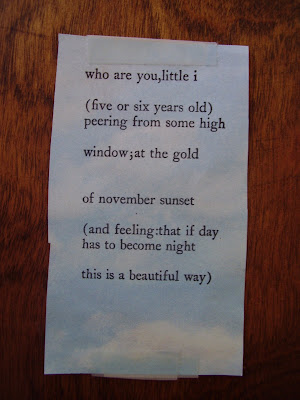 who are you,little i
(five or six years old)
peering from some high
window;at the gold
of november sunset
(and feeling:that if day
has to become night
this is a beautiful way)